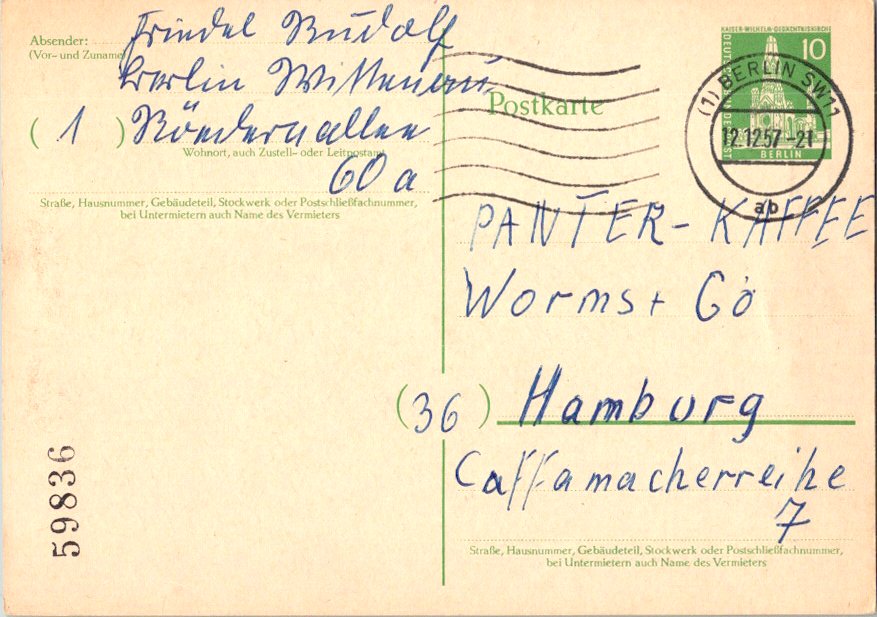 Absender:
(Vor- und Zuname)
Friedel Rudolf
Berlin Wittenau
( 1 ) Roedernallee
Wohnort, auch Zustell- oder Leitpostamt
60 a
Straße, Hausnummer, Gebäudeteil, Stockwerk oder Postschließfachnummer,
bei Untermietern auch Name des Vermieters
59836
Postkarte
KAISER-WILHELM-GEDÄCHTNISKIRCHE
10
DEUTSCHE BUNDESPOST
BERLIN
(1) BERLIN SW11
12.12.57.-21
ab
PANTER-KAFFEE
Worms + Cö
(36) Hamburg
Caffamacherreihe
7
Straße, Hausnummer, Gebäudeteil, Stockwerk oder Postschließfachnummer,
bei Untermietern auch Name des Vermieters